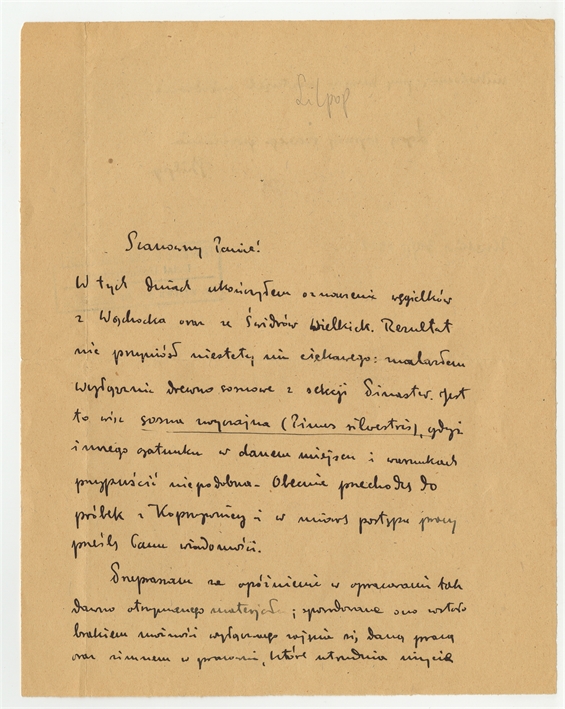 Lilpop
Szanowny Panie!
W tych dniach ukończyłem oznaczenie węgielków
z Wąchocka oraz ze Świdrów Wielkich. Rezultat
nie przyniósł niestety nic ciekawego: znalazłem
wyłącznie drewno sosnowe z sekcji Pinaster. Jest
to więc sosna zwyczajna (Pinus silvestris), gdyż
innego gatunku w danem miejscu i warunkach
przypuścić niepodobna. Obecnie przechodzę do
próbek z Koprzywnicy i w miarę postępu pracy
prześlę Panu wiadomości.
Przepraszam za opóźnienie w opracowaniu tak
dawno otrzymanego materjału; spowodowane ono zostało
brakiem możności wyłącznego zajęcia się daną pracą
oraz zimnem w pracowni, które utrudnia użycie